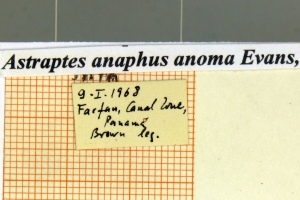 Astraptes anaphus anoma Evans,
9-I-1968
Farfan, Canal Zone,
Panama
Brown leg.